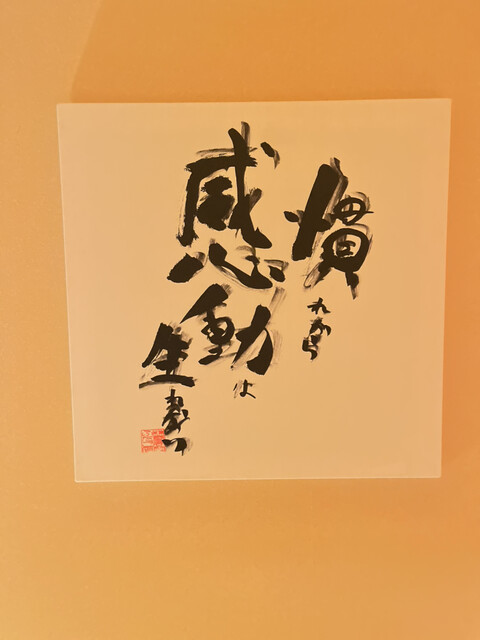 慣れから
感動は
生まれない